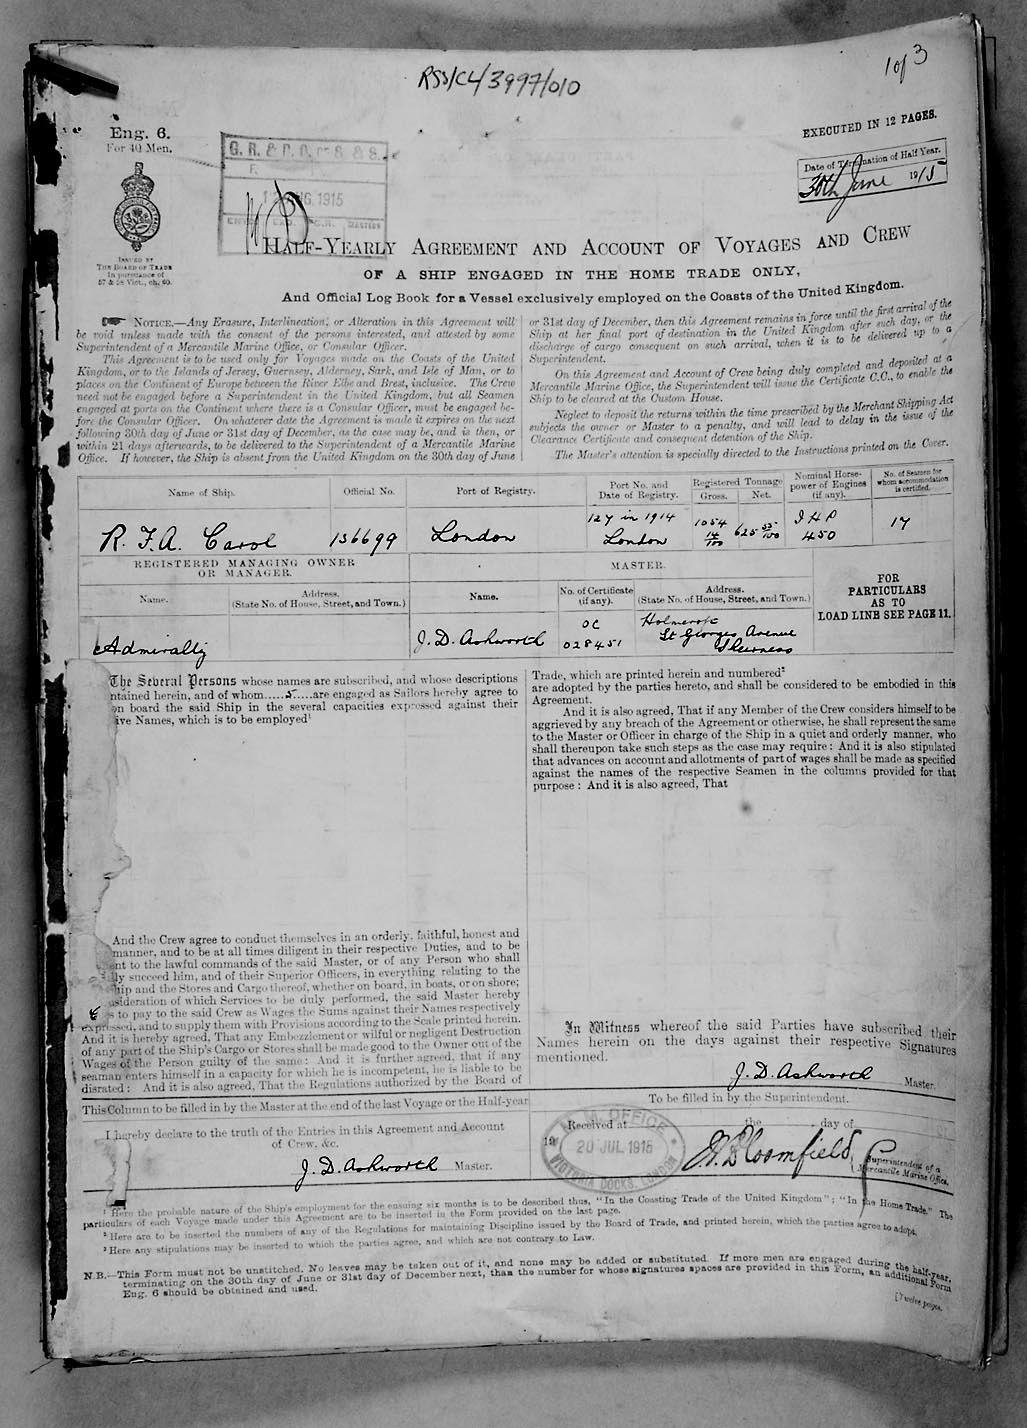 RSS/CL/3997/010
1 of 3
Eng. 6.
For 40 Men.
EXECUTED IN 12 PAGES.
Date of Termination of Half Year.
30th June 1915
G. R. & P. O. of S. & S.
AUG. 1915
ISSUED BY
THE BOARD OF TRADE
In pursuance of
57 & 58 Vict., ch. 60.
HALF-YEARLY AGREEMENT AND ACCOUNT OF VOYAGES AND CREW
OF A SHIP ENGAGED IN THE HOME TRADE ONLY,
And Official Log Book for a Vessel exclusively employed on the Coasts of the United Kingdom.
NOTICE.—Any Erasure, Interlineation, or Alteration in this Agreement will
be void unless made with the consent of the persons interested, and attested by some
Superintendent of a Mercantile Marine Office, or Consular Officer.
This Agreement is to be used only for Voyages made on the Coasts of the United
Kingdom, or to the Islands of Jersey, Guernsey, Alderney, Sark, and Isle of Man, or to
places on the Continent of Europe between the River Elbe and Brest, inclusive. The Crew
need not be engaged before a Superintendent in the United Kingdom, but all Seamen
engaged at ports on the Continent where there is a Consular Officer, must be engaged be-
fore the Consular Officer. On whatever date the Agreement is made it expires on the next
following 30th day of June or 31st day of December, as the case may be, and is then, or
within 21 days afterwards, to be delivered to the Superintendent of a Mercantile Marine
Office. If however, the Ship is absent from the United Kingdom on the 30th day of June
or 31st day of December, then this Agreement remains in force until the first arrival of the
Ship at her final port of destination in the United Kingdom after such day, or the
discharge of cargo consequent on such arrival, when it is to be delivered up to a
Superintendent.
On this Agreement and Account of Crew being duly completed and deposited at a
Mercantile Marine Office, the Superintendent will issue the Certificate C.C., to enable the
Ship to be cleared at the Custom House.
Neglect to deposit the returns within the time prescribed by the Merchant Shipping Act
subjects the owner or Master to a penalty, and will lead to delay in the issue of the
Clearance Certificate and consequent detention of the Ship.
The Master's attention is specially directed to the Instructions printed on the Cover.
Name of Ship.
Official No.
Port of Registry.
Port No. and
Date of Registry.
Registered Tonnage
Gross.
Net.
Nominal Horse-
power of Engines
(if any).
No. of Seamen for
whom accommodation
is certified.
R. F. A. Carol
136699
London
127 in 1914
London
1054 14/100
625 55/100
I H P
450
17
REGISTERED MANAGING OWNER
OR MANAGER.
MASTER.
Name.
Address.
(State No. of House, Street, and Town.)
Name.
No. of Certificate
(if any).
Address.
(State No. of House, Street, and Town.)
FOR
PARTICULARS
AS TO
LOAD LINE SEE PAGE 11.
Admiralty
J. D. Ashworth
OC
028451
Holmcroft
St Georges Avenue
Sheerness
The Several Persons whose names are subscribed, and whose descriptions
ntained herein, and of whom.....5....are engaged as Sailors hereby agree to
on board the said Ship in the several capacities expressed against their
ive Names, which is to be employed¹
And the Crew agree to conduct themselves in an orderly, faithful, honest and
manner, and to be at all times diligent in their respective Duties, and to be
nt to the lawful commands of the said Master, or of any Person who shall
lly succeed him, and of their Superior Officers, in everything relating to the
hip and the Stores and Cargo thereof, whether on board, in boats, or on shore;
nsideration of which Services to be duly performed, the said Master hereby
s to pay to the said Crew as Wages the Sums against their Names respectively
expressed, and to supply them with Provisions according to the Scale printed herein.
And it is hereby agreed, That any Embezzlement or wilful or negligent Destruction
of any part of the Ship's Cargo or Stores shall be made good to the Owner out of the
Wages of the Person guilty of the same: And it is further agreed, that if any
seaman enters himself in a capacity for which he is incompetent, he is liable to be
disrated: And it is also agreed, That the Regulations authorized by the Board of
Trade, which are printed herein and numbered²
are adopted by the parties hereto, and shall be considered to be embodied in this
Agreement.
And it is also agreed, That if any Member of the Crew considers himself to be
aggrieved by any breach of the Agreement or otherwise, he shall represent the same
to the Master or Officer in charge of the Ship in a quiet and orderly manner, who
shall thereupon take such steps as the case may require: And it is also stipulated
that advances on account and allotments of part of wages shall be made as specified
against the names of the respective Seamen in the columns provided for that
purpose: And it is also agreed, That
In Witness whereof the said Parties have subscribed their
Names herein on the days against their respective Signatures
mentioned.
J. D. Ashworth Master.
This Column to be filled in by the Master at the end of the last Voyage or the Half-year
I hereby declare to the truth of the Entries in this Agreement and Account
of Crew, &c.
J. D. Ashworth Master.
To be filled in by the Superintendent.
Received at the day of
19
M. M. OFFICE
20 JUL 1915
VICTORIA DOCKS, LONDON
Bloomfield
Superintendent of a
Mercantile Marine Office.
¹ Here the probable nature of the Ship's employment for the ensuing six months is to be described thus, "In the Coasting Trade of the United Kingdom"; "In the Home Trade." The
particulars of each Voyage made under this Agreement are to be inserted in the Form provided on the last page.
² Here are to be inserted the numbers of any of the Regulations for maintaining Discipline issued by the Board of Trade, and printed herein, which the parties agree to adopt.
³ Here any stipulations may be inserted to which the parties agree, and which are not contrary to Law.
N.B.—This Form must not be unstitched. No leaves may be taken out of it, and none may be added or substituted. If more men are engaged during the half-year,
terminating on the 30th day of June or 31st day of December next, than the number for whose signatures spaces are provided in this Form, an additional Form
Eng. 6 should be obtained and used.
[Twelve pages.